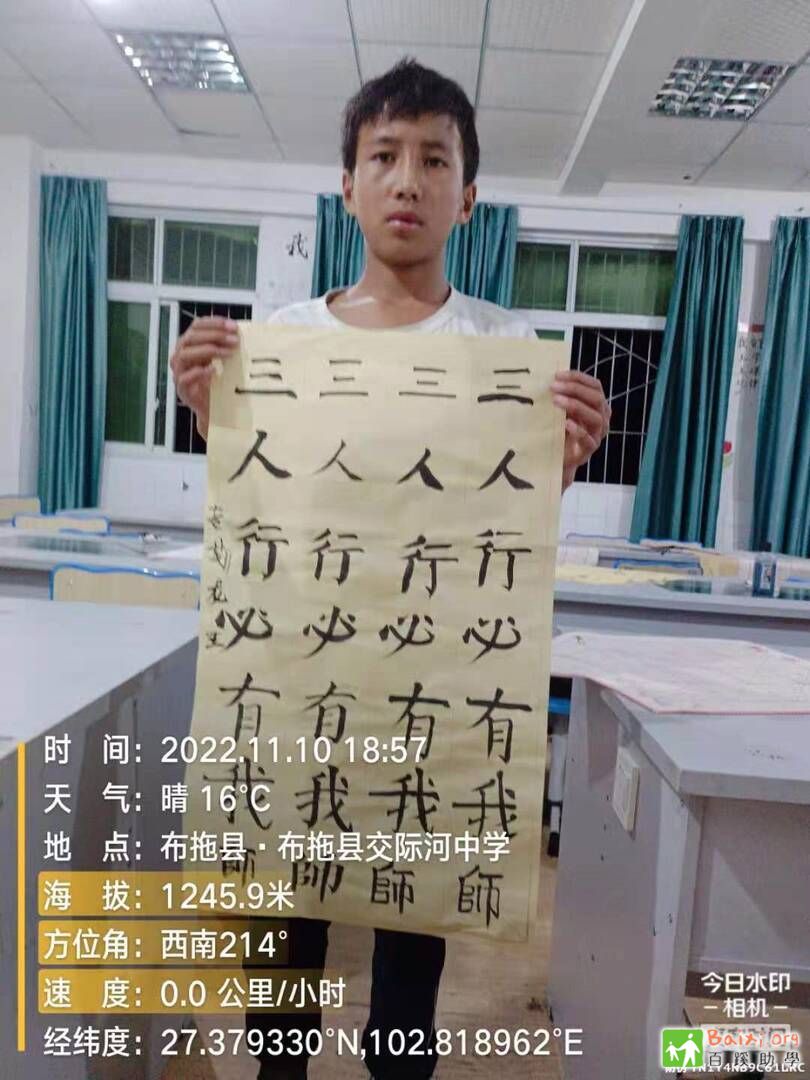 我
三人行必有我師
三人行必有我師
三人行必有我帥
三人行必有我師
时 间：2022.11.10 18:57
天 气：晴 16℃
地 点：布拖县·布拖县交际河中学
海 拔：1245.9米
方位角：西南214°
速 度：0.0 公里/小时
经纬度：27.379330°N,102.818962°E
今日水印
-相机-
Baixi.org
百蹊助學